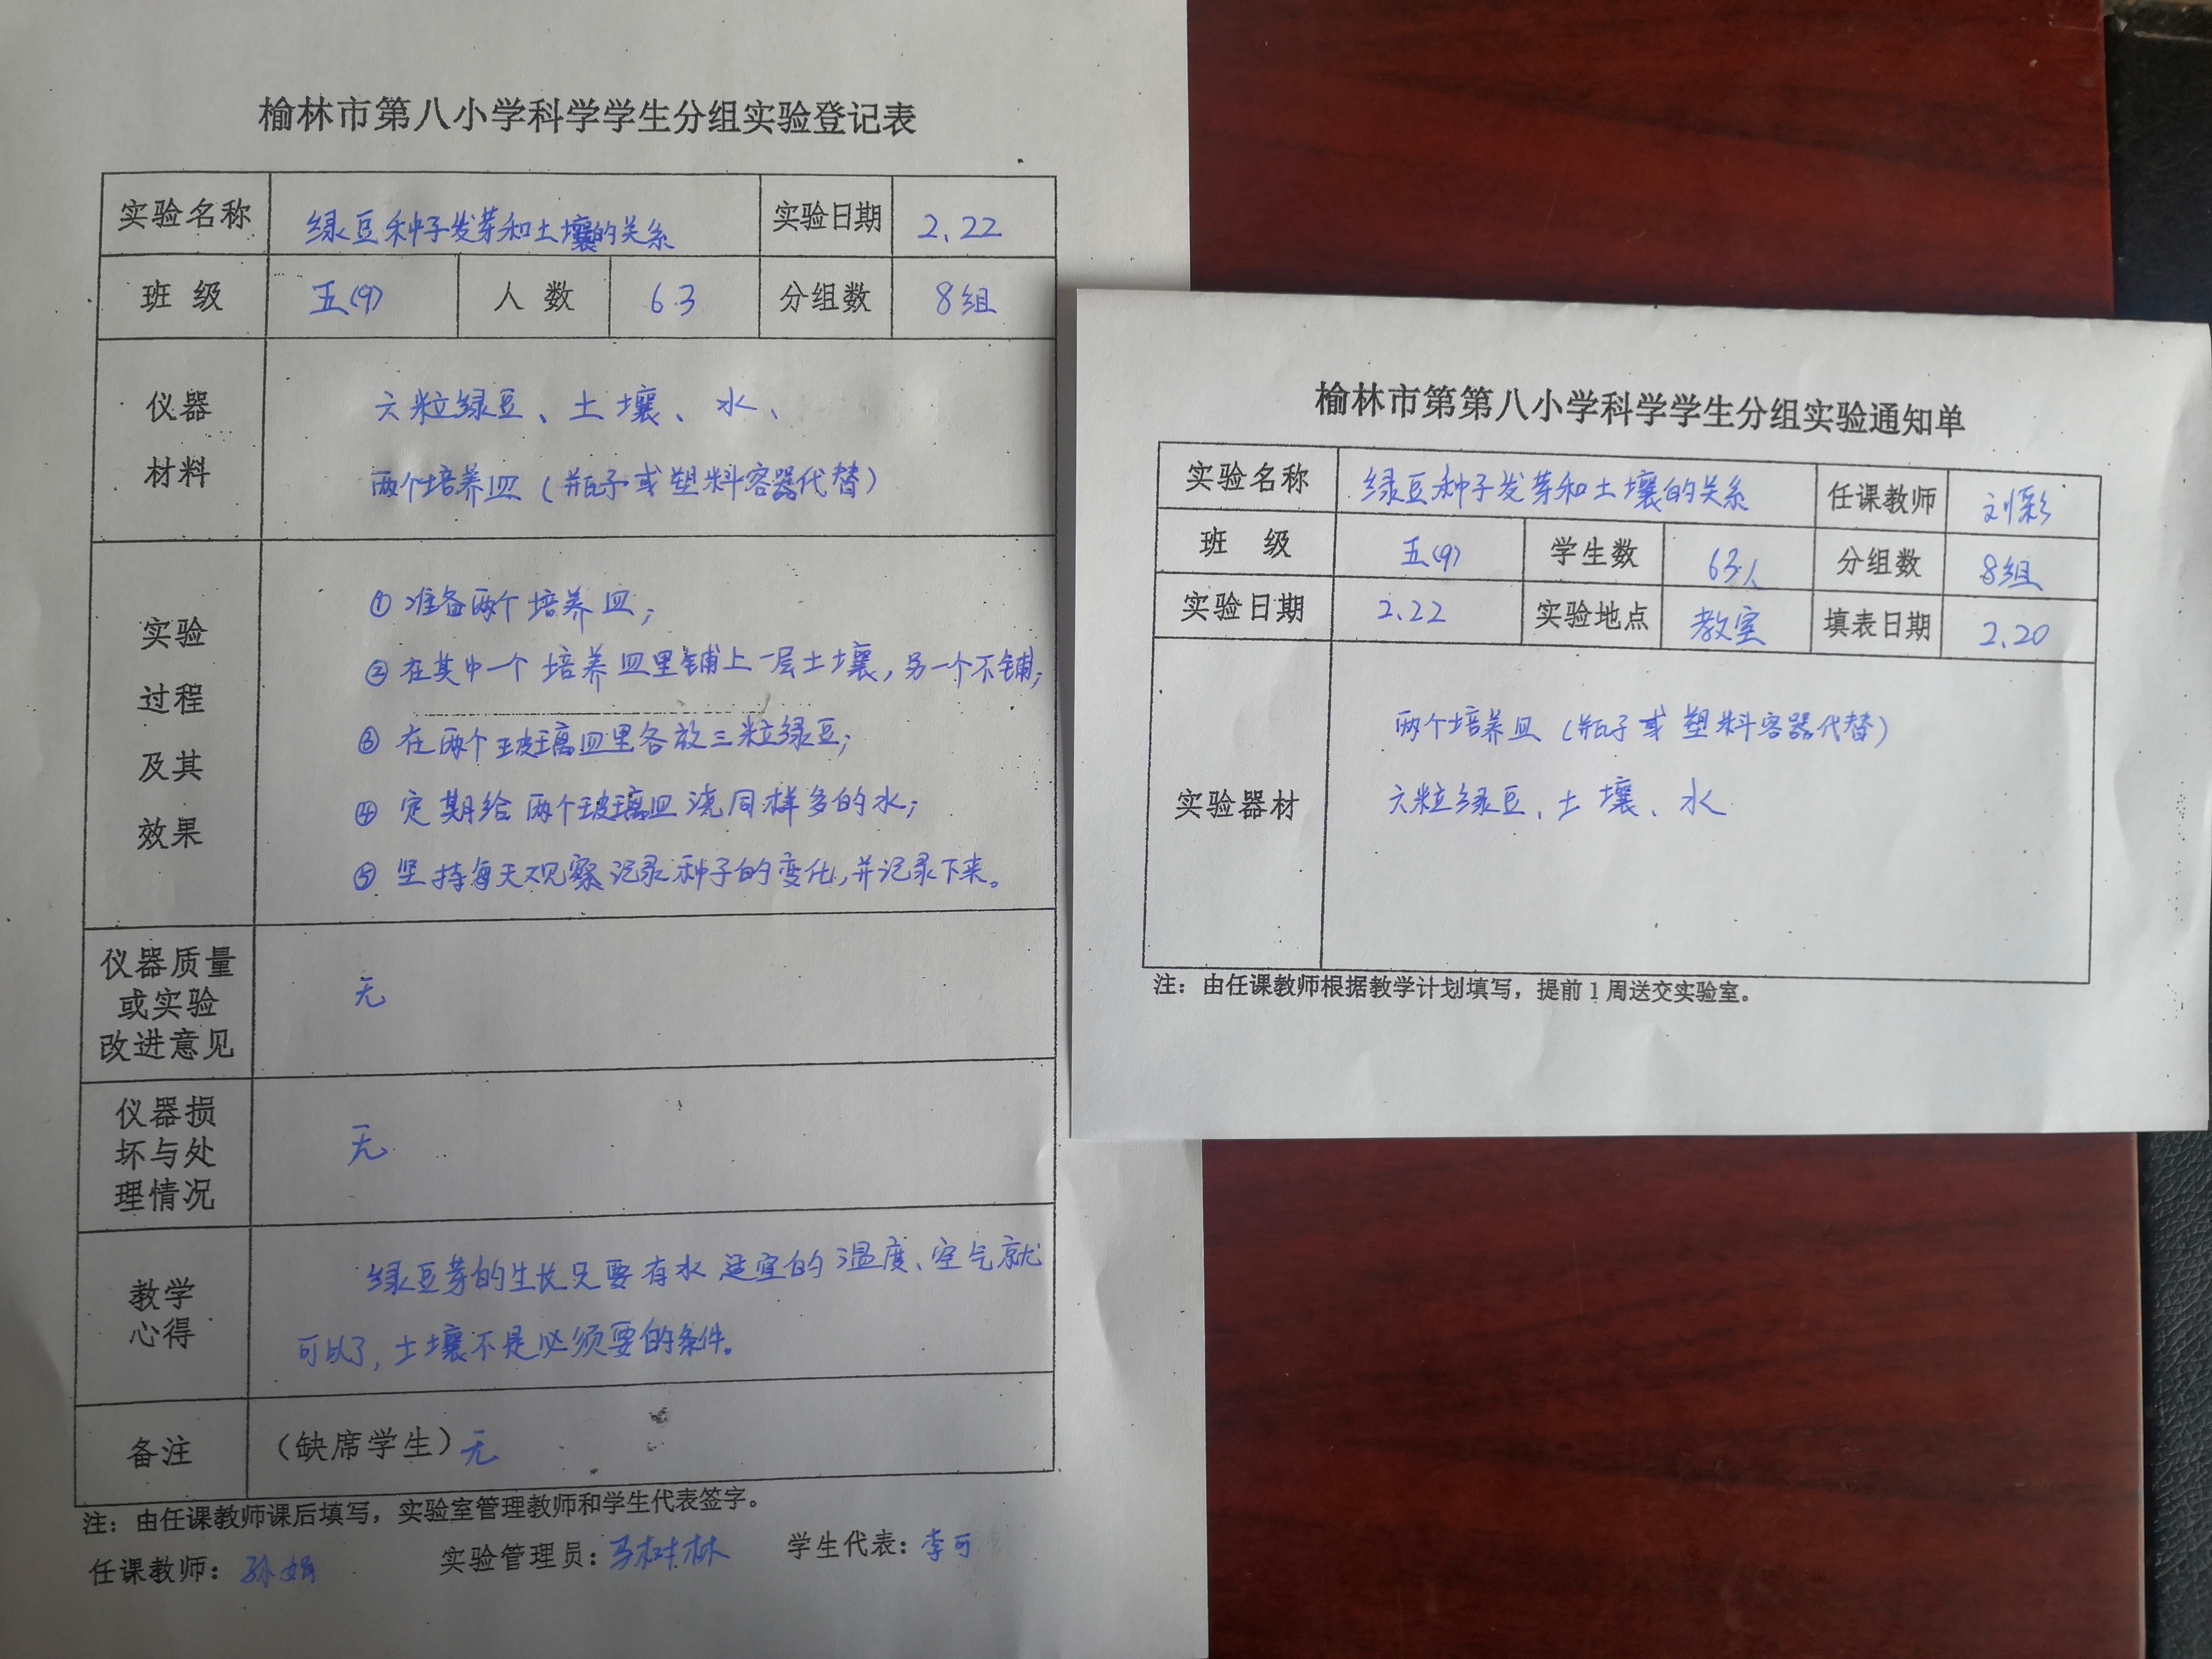 榆林市第八小学科学学生分组实验登记表
实验名称 绿豆种子发芽和土壤的关系 实验日期 2.22
班 级 五(9) 人 数 63 分组数 8组
仪器
材料
六粒绿豆、土壤、水、
两个培养皿（瓶子或塑料容器代替）
实验
过程
及其
效果
① 准备两个培养皿；
② 在其中一个培养皿里铺上一层土壤，另一个不铺；
③ 在两个玻璃皿里各放三粒绿豆；
④ 定期给两个玻璃皿浇同样多的水；
⑤ 坚持每天观察记录种子的变化，并记录下来。
仪器质量
或实验
改进意见
无
仪器损
坏与处
理情况
无
教学
心得
绿豆芽的生长只要有水适宜的温度、空气就
可以了，土壤不是必须要的条件。
备注 （缺席学生）无
注：由任课教师课后填写，实验室管理教师和学生代表签字。
任课教师：孙娟 实验管理员：马树林 学生代表：李可
榆林市第第八小学科学学生分组实验通知单
实验名称 绿豆种子发芽和土壤的关系 任课教师 刘彩
班 级 五(9) 学生数 63人 分组数 8组
实验日期 2.22 实验地点 教室 填表日期 2.20
实验器材
两个培养皿（瓶子或塑料容器代替）
六粒绿豆、土壤、水
注：由任课教师根据教学计划填写，提前1周送交实验室。